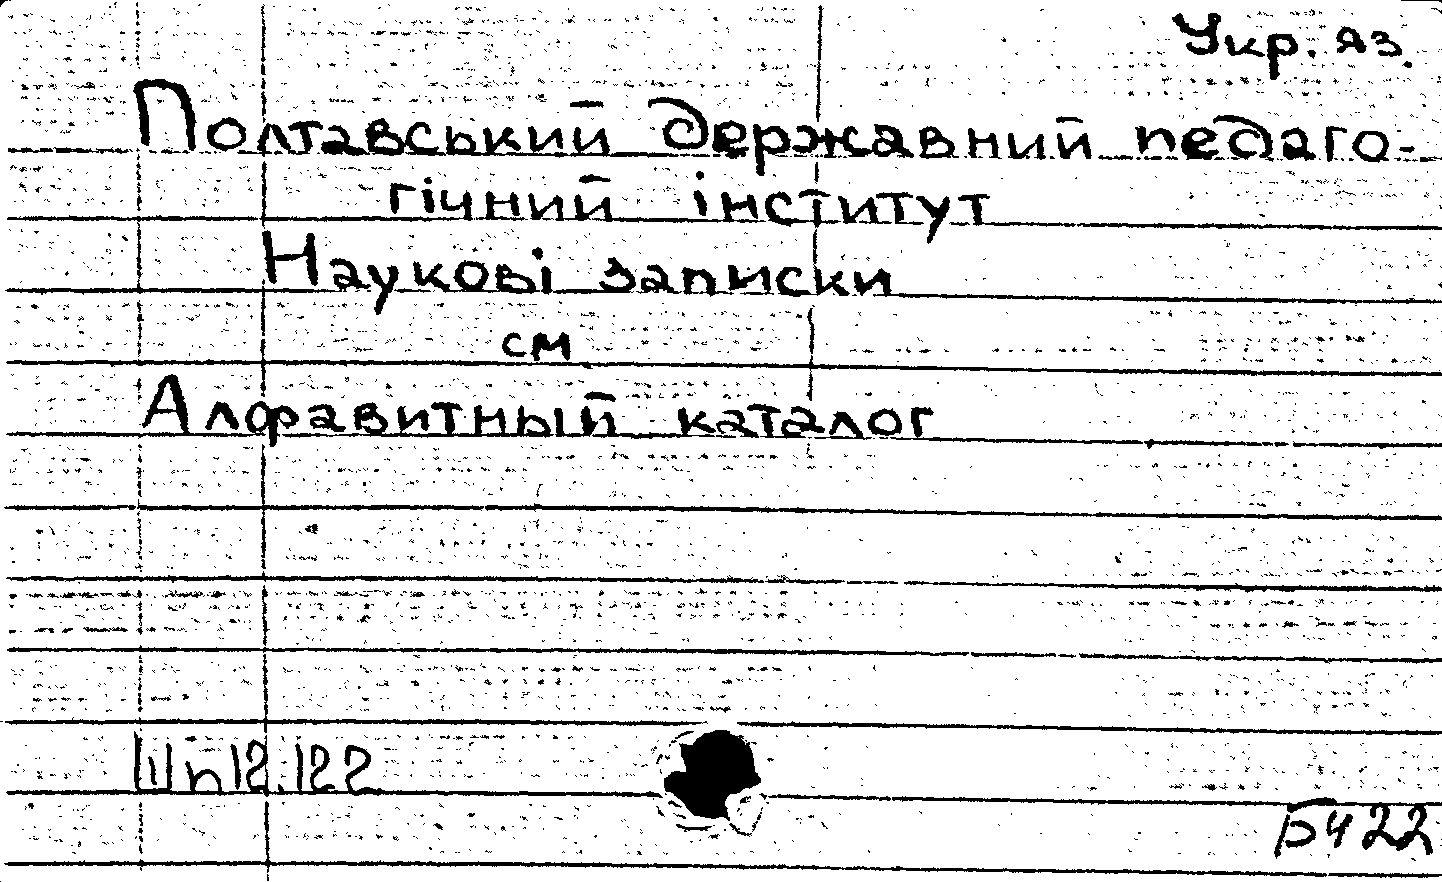 Укр. яз.
Полтавський державний педаго-
гічний інститут
Наукові записки
см
Алфавитный каталог
Шп12.122
Б422